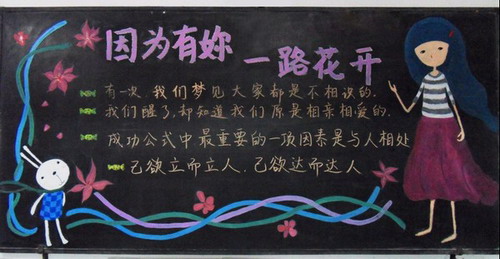 因为有妳
一路花开
有一次,我们梦见大家都是不相识的.
我们醒了,却知道我们原是相亲相爱的.
成功公式中最重要的一项因素是与人相处
己欲立而立人,己欲达而达人